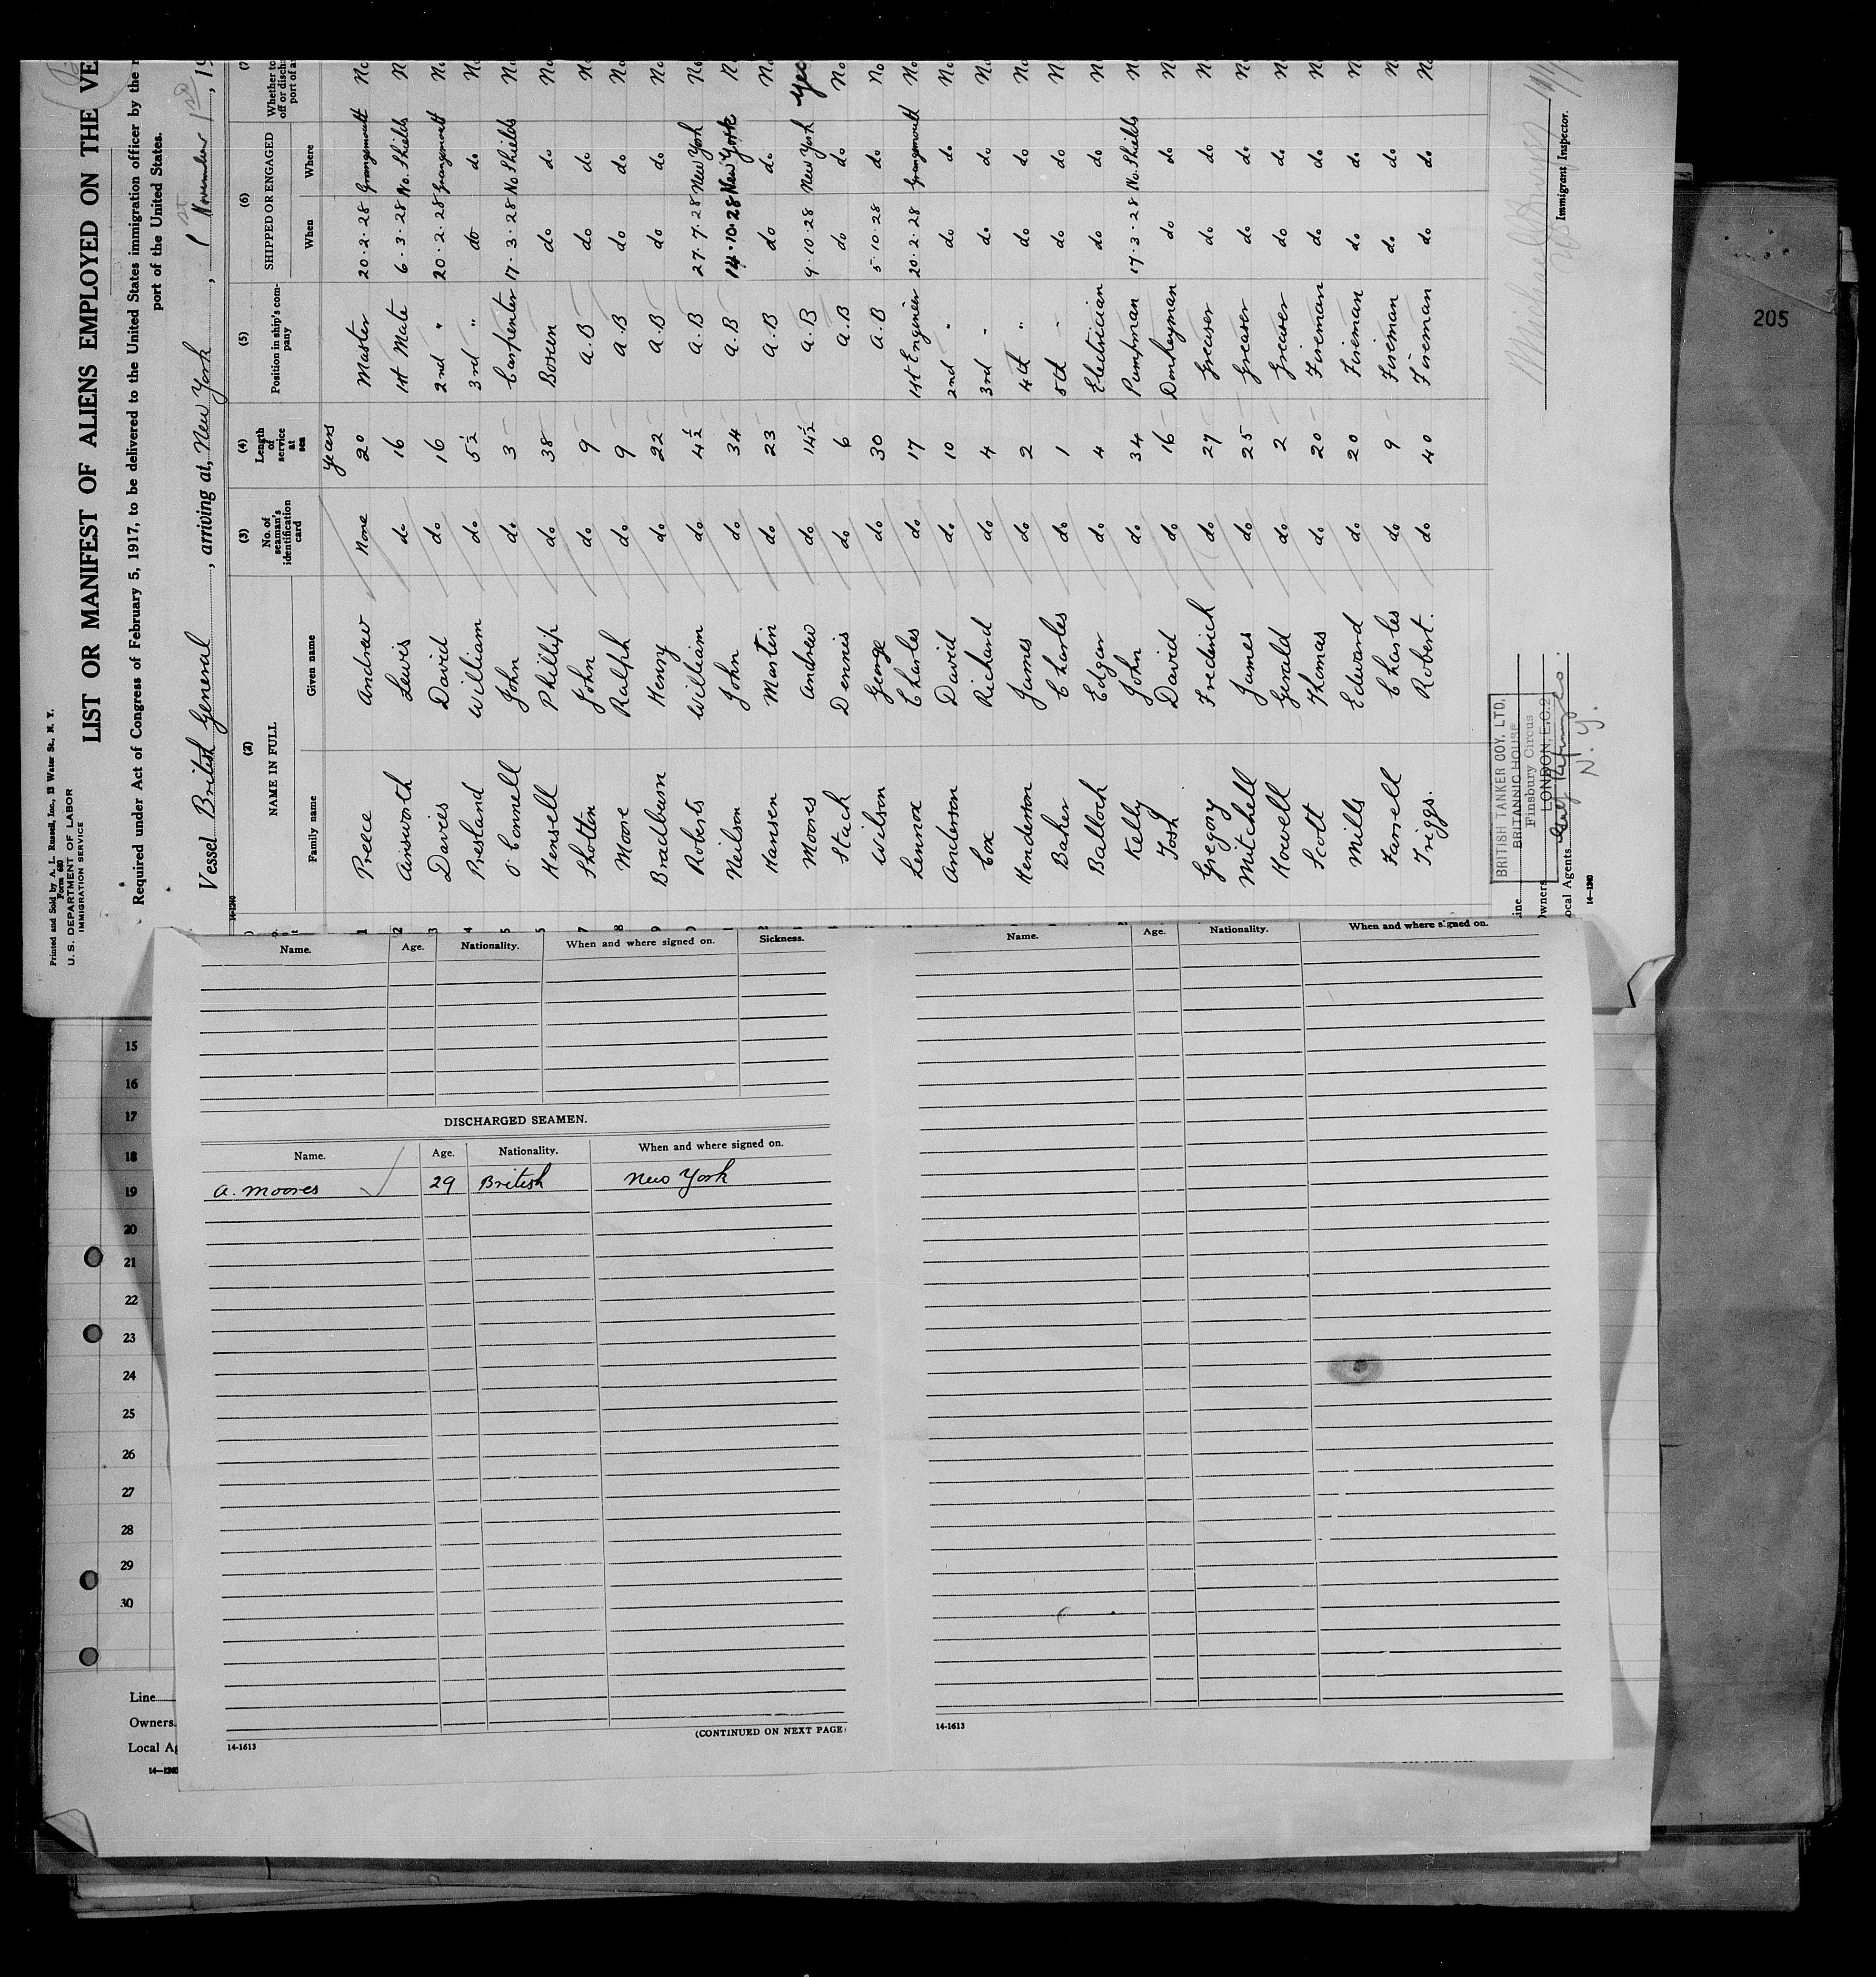 Printed and Sold by A. L. Russell, Inc., 13 Water St., N. Y.
Form 680
U. S. DEPARTMENT OF LABOR
IMMIGRATION SERVICE
LIST OR MANIFEST OF ALIENS EMPLOYED ON THE VE
Required under Act of Congress of February 5, 1917, to be delivered to the United States immigration officer by the r
port of the United States.
Vessel British General, arriving at, New York, 1st November 1st, 19
(2) (3) (4) (5) (6) (7)
NAME IN FULL No. of seaman's identification card Length of service at sea Position in ship's com-pany SHIPPED OR ENGAGED Whether to off or discha port of ar
Family name Given name When Where
years
1 Preece Andrew None 20 Master 20.2.28 Grangemouth No
2 Ainsworth Lewis do 16 1st Mate 6.3.28 No. Shields N
3 Davies David do 16 2nd " 20.2.28 Grangemouth No
4 Presland William do 5½ 3rd " do do No
5 O'Connell John do 3 Carpenter 17.3.28 No Shields No
Kensell Phillip do 38 Bosun do do No
7 Shotton John do 9 A.B do do No
8 Moore Ralph do 9 A.B do do No
9 Bradburn Henry do 22 A.B do do No
Roberts William do 4½ A.B 27.7.28 New York No
Neilson John do 34 A.B 14.10.28 New York N
Hansen Martin do 23 A.B do do No
Moores Andrew do 14½ A.B 9.10.28 New York Yes
Stack Dennis do 6 A.B do do No
Wilson George do 30 A.B 5.10.28 do No
Lennox Charles do 17 1st Engineer 20.2.28 Grangemouth No
Anderson David do 10 2nd " do do No
Cox Richard do 4 3rd " do do No
Henderson James do 2 4th " do do N
Baker Charles do 1 5th " do do N
Balloch Edgar do 4 Electrician do do N
Kelly John do 34 Pumpman 17.3.28 No. Shields No
Tosh David do 16 Donkeyman do do No
Gregory Frederick do 27 Greaser do do N
Mitchell James do 25 Greaser do do N
Howell Gerald do 2 Greaser do do N
Scott Thomas do 20 Fireman do do N
Mills Edward do 20 Fireman do do N
Farrell Charles do 9 Fireman do do N
Triggs. Robert. do 40 Fireman do do N
BRITISH TANKER COY. LTD.
BRITANNIC HOUSE
Finsbury Circus
LONDON, E.C.2
ine
wners
ocal Agents Gulf Refining Co.
N. Y.
14-1240
Immigrant Inspector.
205
Name. Age. Nationality. When and where signed on. Sickness.
DISCHARGED SEAMEN.
Name. Age. Nationality. When and where signed on.
A. Moores 29 British New York
(CONTINUED ON NEXT PAGE)
14-1613
Name. Age. Nationality. When and where signed on.
14-1613
15
16
17
18
19
20
21
22
23
24
25
26
27
28
29
30
Line
Owners
Local Ag
14-1240